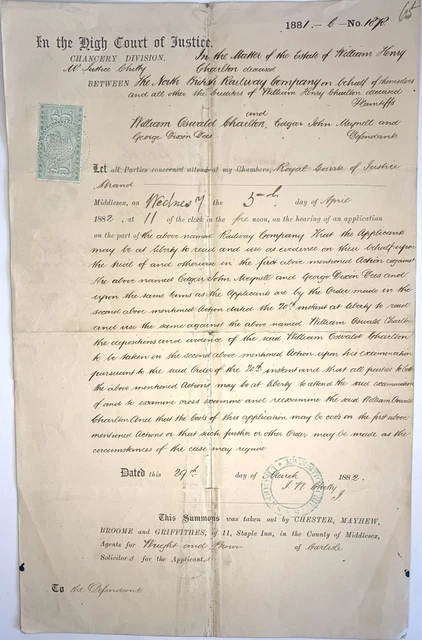 1881. — C — No. 1878
In the High Court of Justice.
CHANCERY DIVISION. In the Matter of the Estate of William Henry
Mr Justice Chitty Charlton deceased
BETWEEN The North British Railway Company on behalf of themselves
and all other the Creditors of William Henry Charlton deceased
Plaintiffs
and
William Oswald Charlton, Edgar John Meynell and
George Dixon Dees Defendants
Let all Parties concerned attend at my Chambers, Royal Courts of Justice
Strand
Middlesex, on Wednesdy the 5th day of April
1882, at 11 of the clock in the fore noon, on the hearing of an application
on the part of the above named Railway Company That the Applicants
may be at liberty to read and use as evidence on their behalf upon
the trial of and otherwise in the first above mentioned Action against
the above named Edgar John Meynell and George Dixon Dees and
upon the same terms as the Applicants are by the Order made in the
second above mentioned Action dated the 20th instant at liberty to read
and use the same against the above named William Oswald Charlton
the depositions and evidence of the said William Oswald Charlton
to be taken in the second above mentioned Action upon his examination
pursuant to the said Order of the 20th instant and that all parties to both
the above mentioned Actions may be at liberty to attend the said examination
of and to examine cross examine and reexamine the said William Oswald
Charlton And that the Costs of this application may be costs in the first above
mentioned Action or that such further or other Order may be made as the
circumstances of the case may require
Dated this 29th day of March 1882.
J. W. Chitty
J
This Summons was taken out by CHESTER, MAYHEW,
BROOME and GRIFFITHES, of 11, Staple Inn, in the County of Middlesex,
Agents for Wright and of Carlisle
Solicitors for the Applicants
To the Defendants